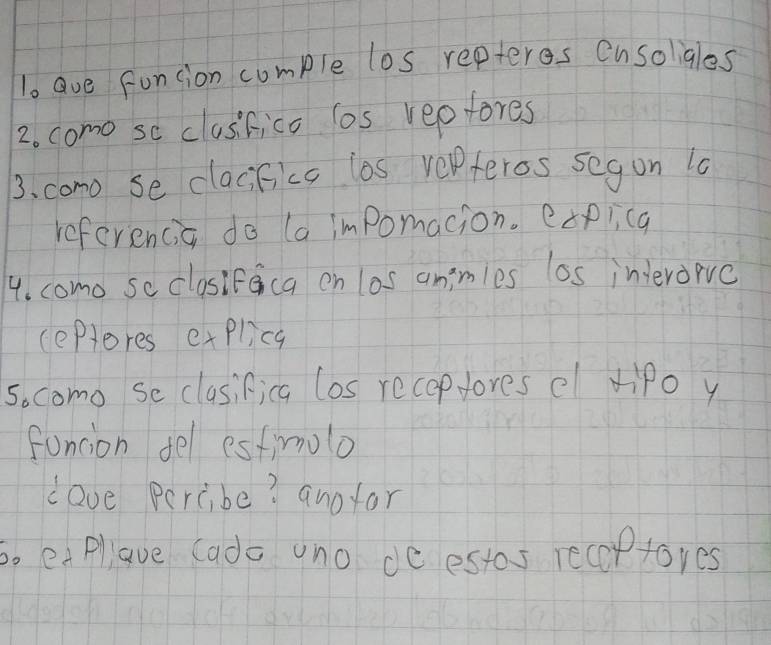 1. Que funcion cumple los repteros ensoliales
2. como se clasifica los reptores
3. como se clacifica los repteros segon la
referencia do la impomacion. explica
4. como se clasifaca en los animles los interorve
ceptores explica
5. como se clasifica los receptores el tipo y
funcion del estimolo
¿Que percibe? anotar
6. expliave cada uno de estos receptores